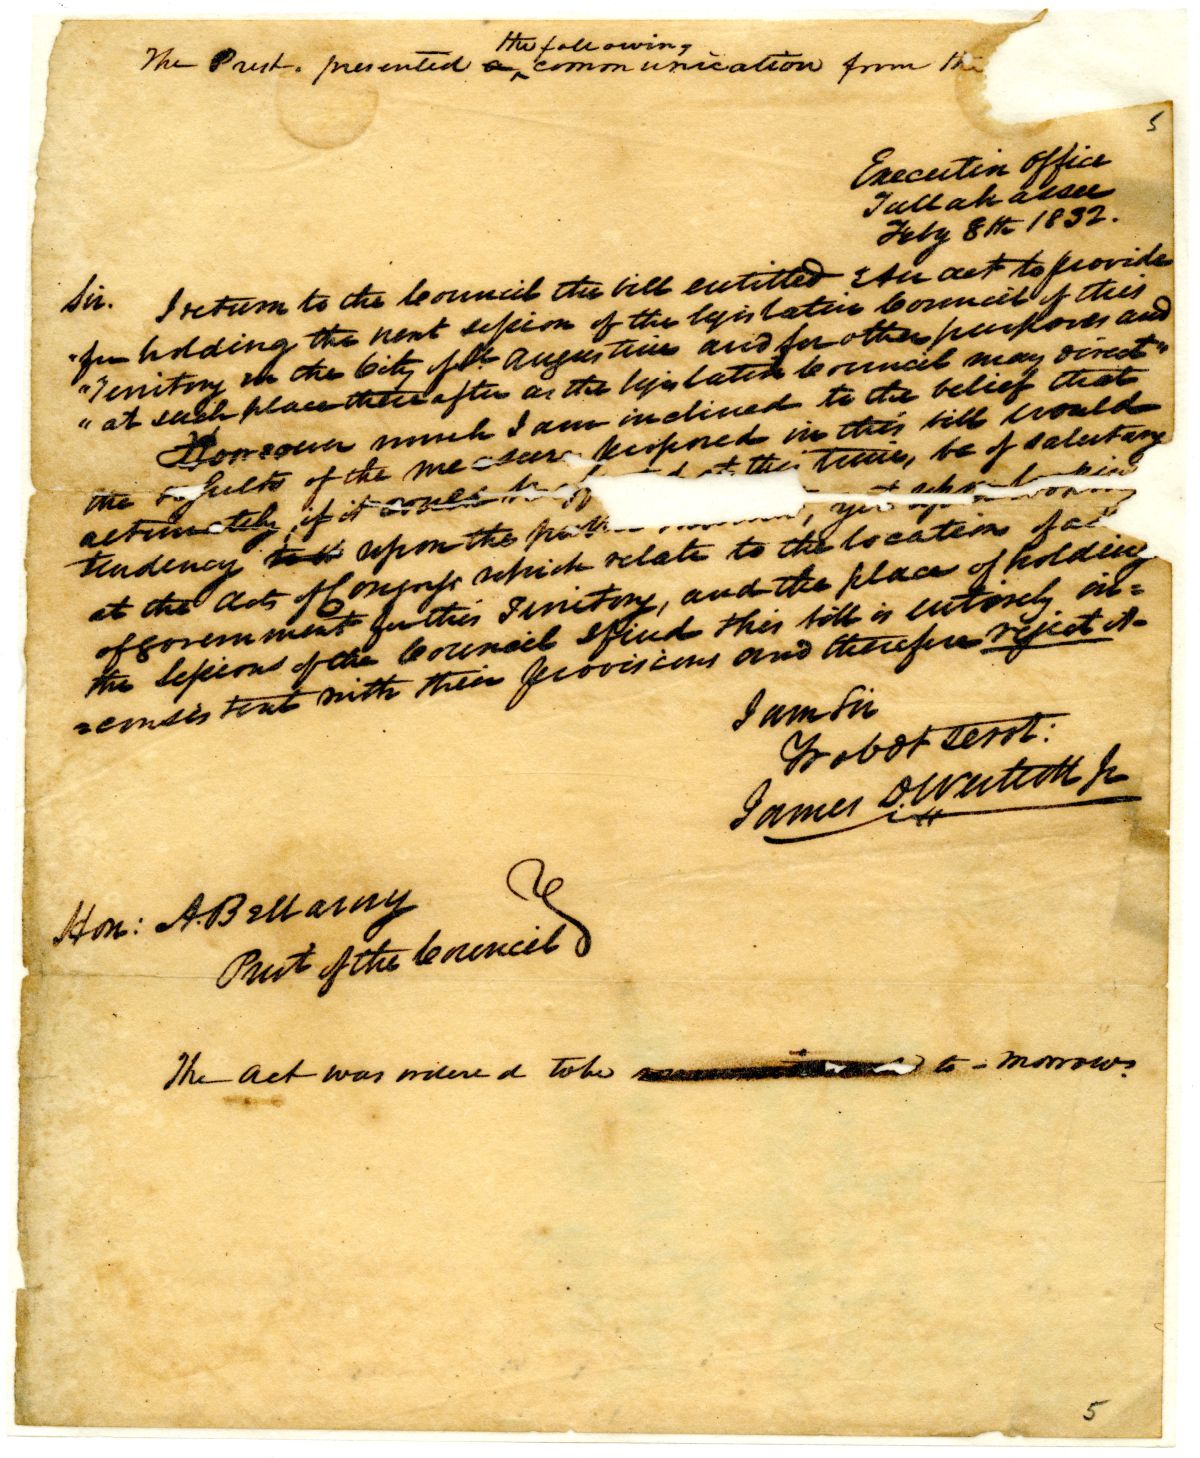 The Prest. presented a the following communication from the
5
Executive Office
Tallahassee
Feby 8th 1832.
Sir. I return to the Council the bill entitled "An act to provide
"for holding the next session of the legislative Council of this
"Territory in the City of St. Augustine and for other purposes and
"at such place thereafter as the legislative Council may direct"
However much I am inclined to the belief that
the results of the measure proposed in this bill would
if it at this time, be of salutary
tendency upon the yet upon looking
at the acts of Congress which relate to the location of
of government for this Territory, and the place of holding
the Sessions of the Council I find this bill is entirely in=
=consistent with their provisions and therefore reject it-
I am Sir
Yr obdt servt:
James D. Westcott Jr
Hon: A. Bellamy
Prest of the Council
The act was ordered to be to-morrow.
5